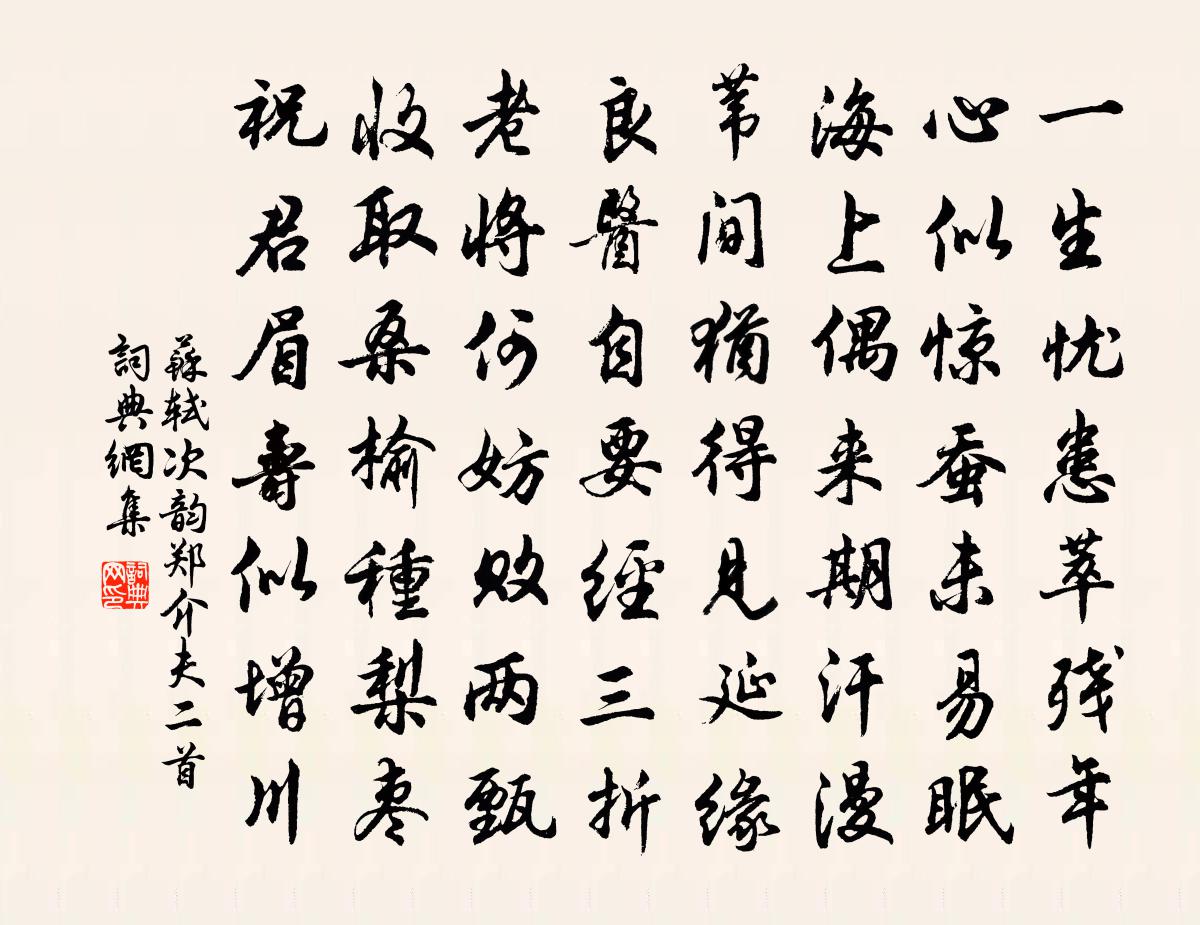 一生忧患萃残年
心似惊蚕未易眠
海上偶来期汗漫
苇间犹得见延缘
良醫自要经三折
老将何妨败两甄
收取桑榆種梨枣
祝君眉壽似增川
蘇轼次韵郑介夫二首
詞典網集
詞典网印